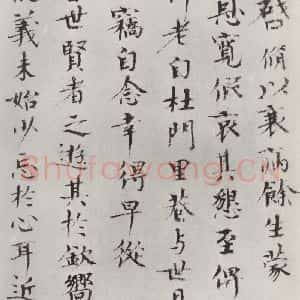 啓脩以衰病餘生蒙
恩寬假哀其懇至俾
老自杜門里巷与世日
竊自念幸得早從
世賢者之遊其於欽嚮
義未始少忘於心耳近
Shufawang.CN